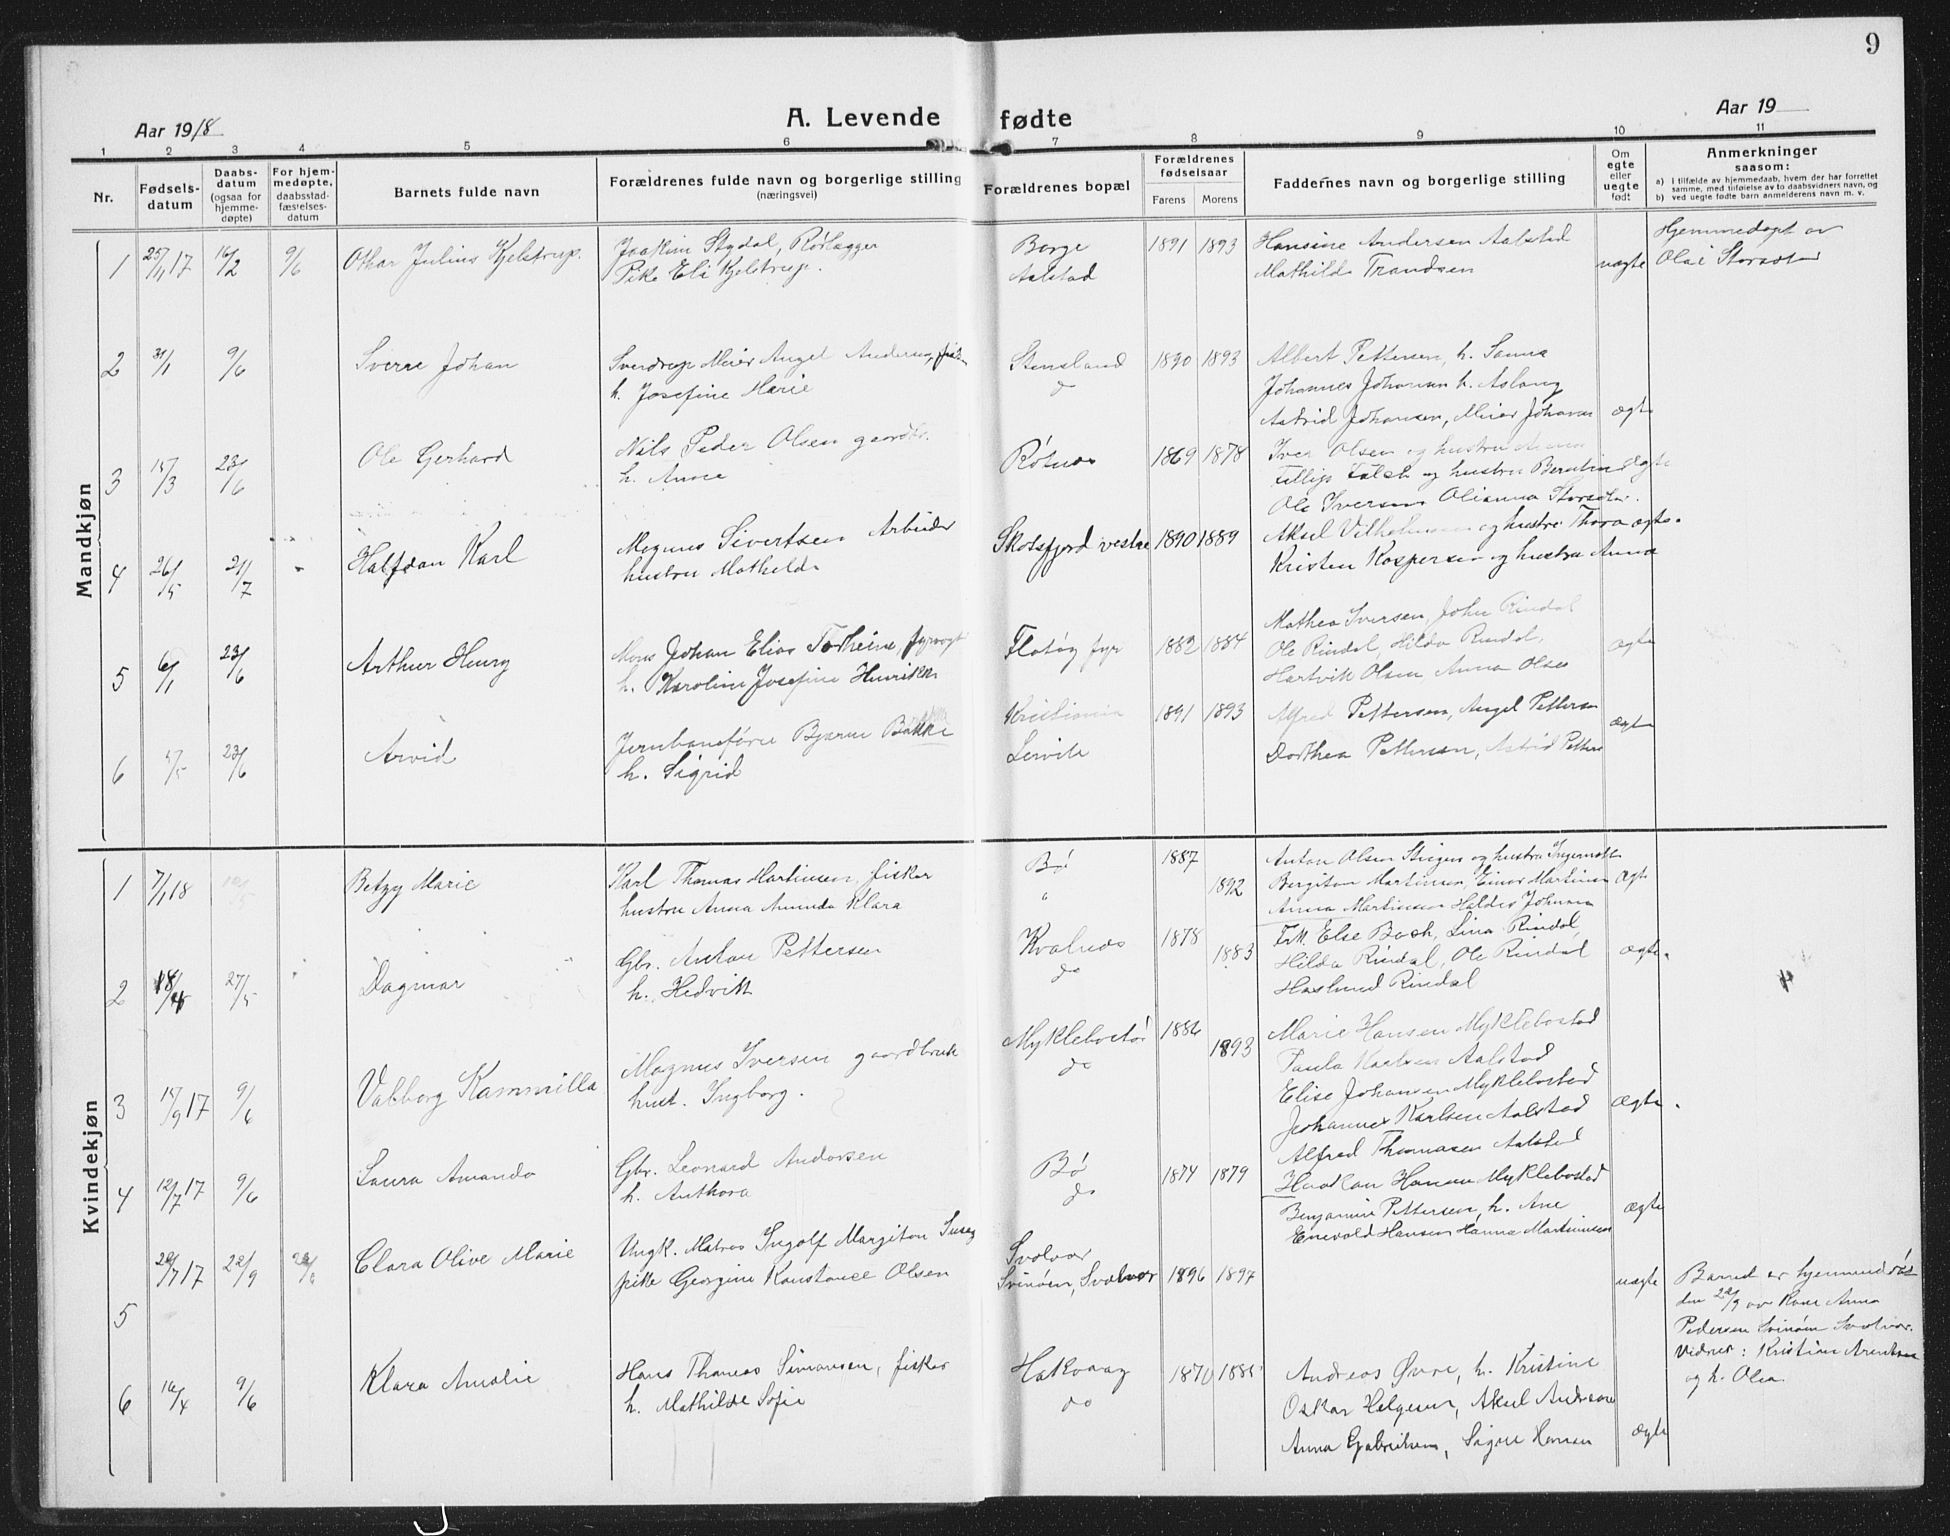 9
Aar 1918
A. Levende fødte
Aar 19
1 2 3 4 5 6 7 8 9 10 11
Nr.
Fødsels-
datum
Daabs-
datum
(ogsaa for
hjemme-
døpte)
For hjem-
medøpte,
daabsstad-
fæstelses-
datum
Barnets fulde navn
Forældrenes fulde navn og borgerlige stilling
(næringsvei)
Forældrenes bopæl
Forældrenes
fødselsaar
Farens Morens
Faddernes navn og borgerlige stilling
Om
egte
eller
uegte
født
Anmerkninger
saasom:
a) I tilfælde av hjemmedaab, hvem der har forrettet
samme, med tilføielse av to daabsvidners navn, og
b) ved uegte fødte barn anmelderens navn m. v.
Mandkjøn
1 25/11 17 16/2 9/6 Othar Julius Kjelstrup. Joakim Stydal, Rørlægger Borge 1891 1893 Hansine Andersen Aalstad uægte Hjemmedøpt av
Pike Eli Kjelstrup. Aalstad Mathilde Trandsen Olai
2 31/1 9/6 Sverre Johan Sverdrup Meier Angel Stensland 1890 1893 Albert Pettersen, h. Sanna
h. Josefine Marie do Johannes Johansen h. Aslaug
Astrid Johansen, Meier Johansen ægte
3 15/3 23/6 Ole Gerhard Nils Peder Olsen gaardbr. Røtnes 1869 1878 Iver Olsen og hustru
h. Anna og hustru ægte
Ole Iversen Olianna
4 26/5 21/7 Halfdan Karl Magnus Sivertsen Arbeider Skotsfjord vestre 1890 1889 Aksel og hustru Thora ægte
hustru Mathilde Kristen Kaspersen og hustru Anna
5 6/1 23/6 Arthur Henry Johan Elias Torheim, fyrvogt Flatøy fyr 1882 1884 Mathea Iversen, John Rindal
h. Karoline Josefine Ole Rindal, Hilda Rindal, ægte
Hartvik Olsen Anna Olsen
6 23/6 Arvid Bjarne Bakke Kristiania 1891 1893 Alfred Pettersen, Angel Pettersen ægte
h. Sigrid Dorthea Pettersen, Astrid
Kvindekjøn
1 7/1 18 Betzy Marie Karl Thomas Martinsen, fisker Bø 1887 1892 Anton Olsen og hustru
hustru Anna Aminda Klara " Martinsen, Einar Martinsen ægte
Anna Martinsen
2 18/4 27/5 Dagmar Gbr. Anton Pettersen Kvalnes 1878 1883 Frk. Else Bach, Lina Rindal,
h. Hedvik do Hilda Rindal, Ole Rindal ægte.
Rindal
3 9/6 Valborg Kammilla Magnus Iversen gaardbruk Myklebostad 1893 Marie Hansen Myklebostad
hust. Ingborg. do Paula Karlsen Aalstad
Elise Johansen Myklebostad
Johannes Karlsen Aalstad ægte.
Alfred Thomassen Aalstad
4 12/7 17 9/6 Laura Amanda Gbr. Leonard Andorsen Bø 1874 1879 Haakon Hansen Myklebostad
h. Anthora do Benjamin Pettersen, h. Ane ægte
Enevold Hansen Hanna Martinussen
5 17 22/9 Clara Olive Marie Ungk. Matros Ingolf Margiton Svolvær
pike Georgine Konstance Olsen Svinøen, Svolvær 1896 1897 uægte Barnet er hjemmedøpt
den 22/9 av Kone Anna
Pedersen Svinøen Svolvær.
Vidner: Kristian Arentsen
og h. Olea.
6 10/4 9/6 Klara Amalie Hans Thomas Simonsen, fisker Hakvaag 1870 Andreas Øvre, h. Kristine
h. Mathilde Sofie do Oskar Helgesen, Aksel
Anna Gabrielsen, Signe Hansen ægte